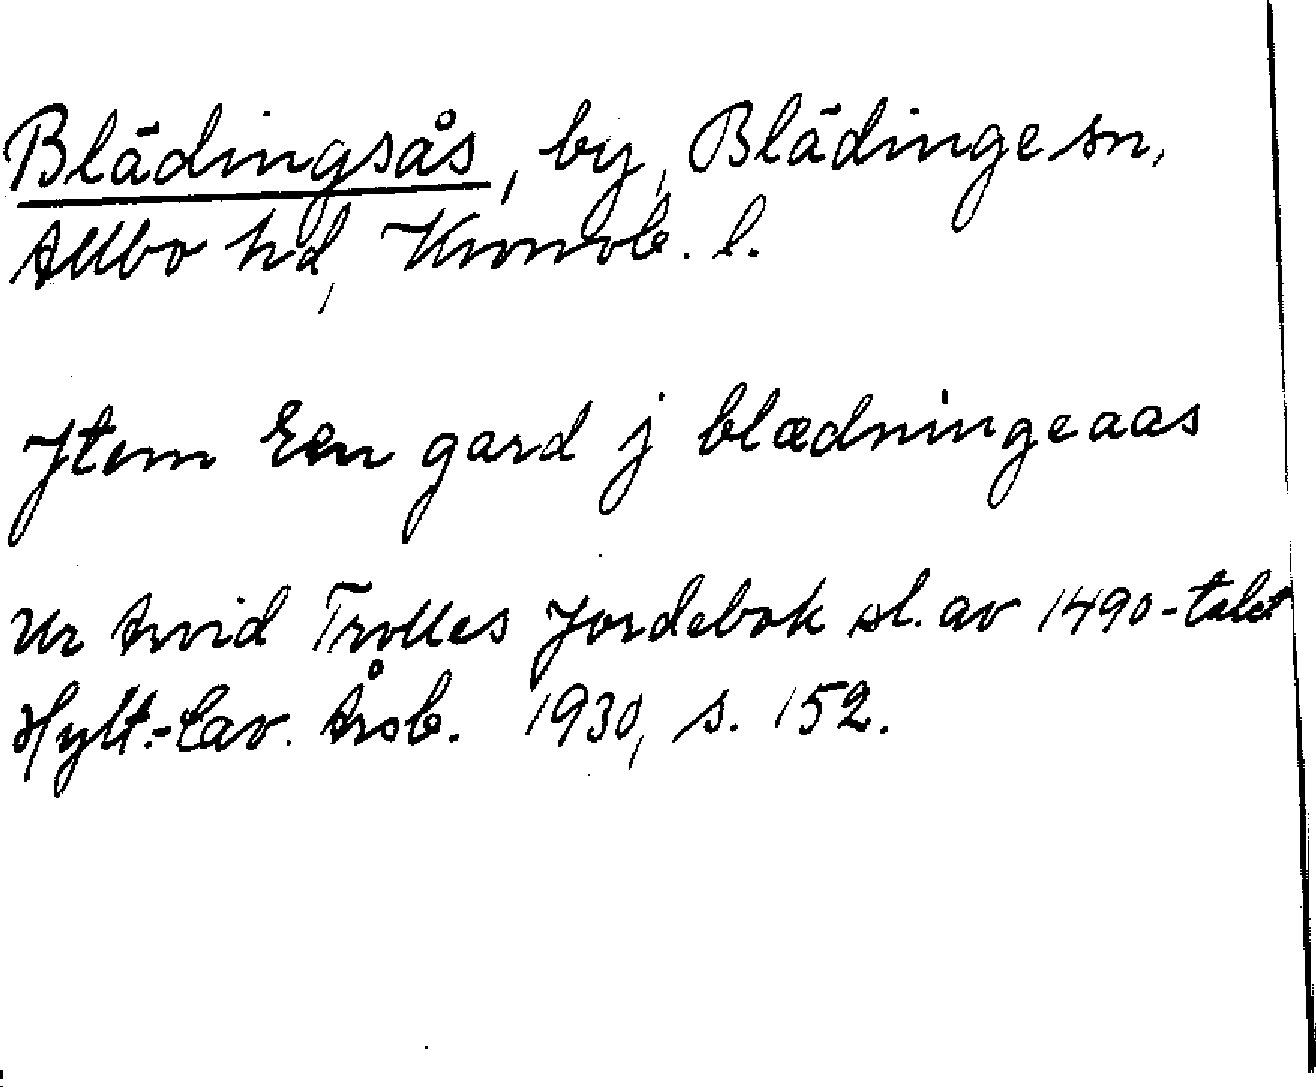 Blädingsås, by, Blädinge sn,
Allbo hd, Kronob. l.
Jtem Een gard j blædningeaas
Ur Arvid Trolles Jordebok sl. av 1490-talet
Hylt.-Cav. Årsb. 1930, s. 152.